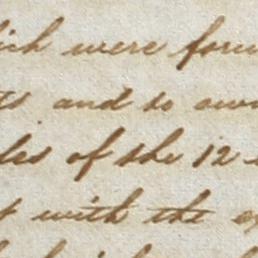 which were foun
ts and so awa
les of the 12
t with the ex